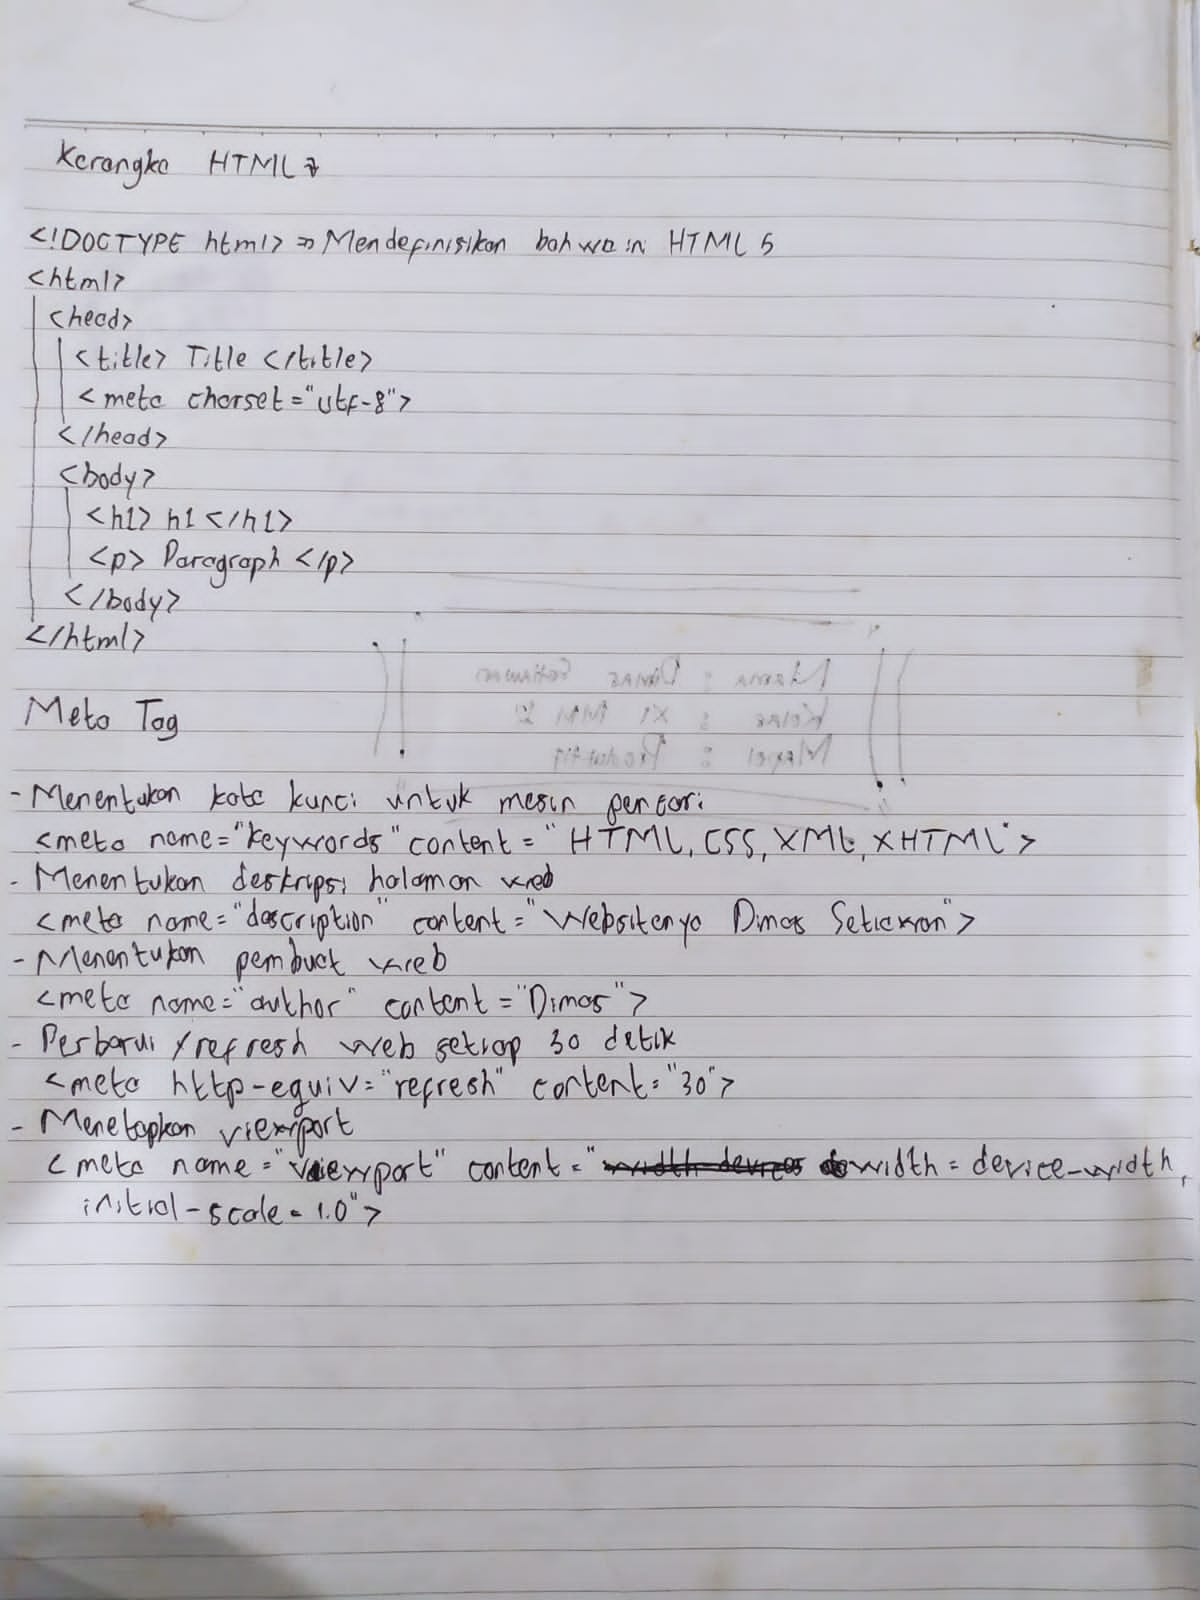 Kerangka HTML 7
<!DOCTYPE html> => Mendefinisikan bahwa in HTML 5
<html>
<head>
<title> Title </title>
<meta charset="utf-8">
</head>
<body>
<h1> h1 </h1>
<p> Paragraph </p>
</body>
</html>
Nama : Dimas Setiawan
Kelas : XI MM 2
Mapel : Produktif
Meta Tag
- Menentukan kata kunci untuk mesin pencari
<meta name="keywords" content="HTML, CSS, XML, XHTML">
- Menentukan deskripsi halaman web
<meta name="description" content="Websitenya Dimas Setiawan">
- Menentukan pembuat web
<meta name="author" content="Dimas">
- Perbarui / refresh web setiap 30 detik
<meta http-equiv="refresh" content="30">
- Menetapkan viewport
<meta name="viewport" content="width = device-width,
initial-scale = 1.0">